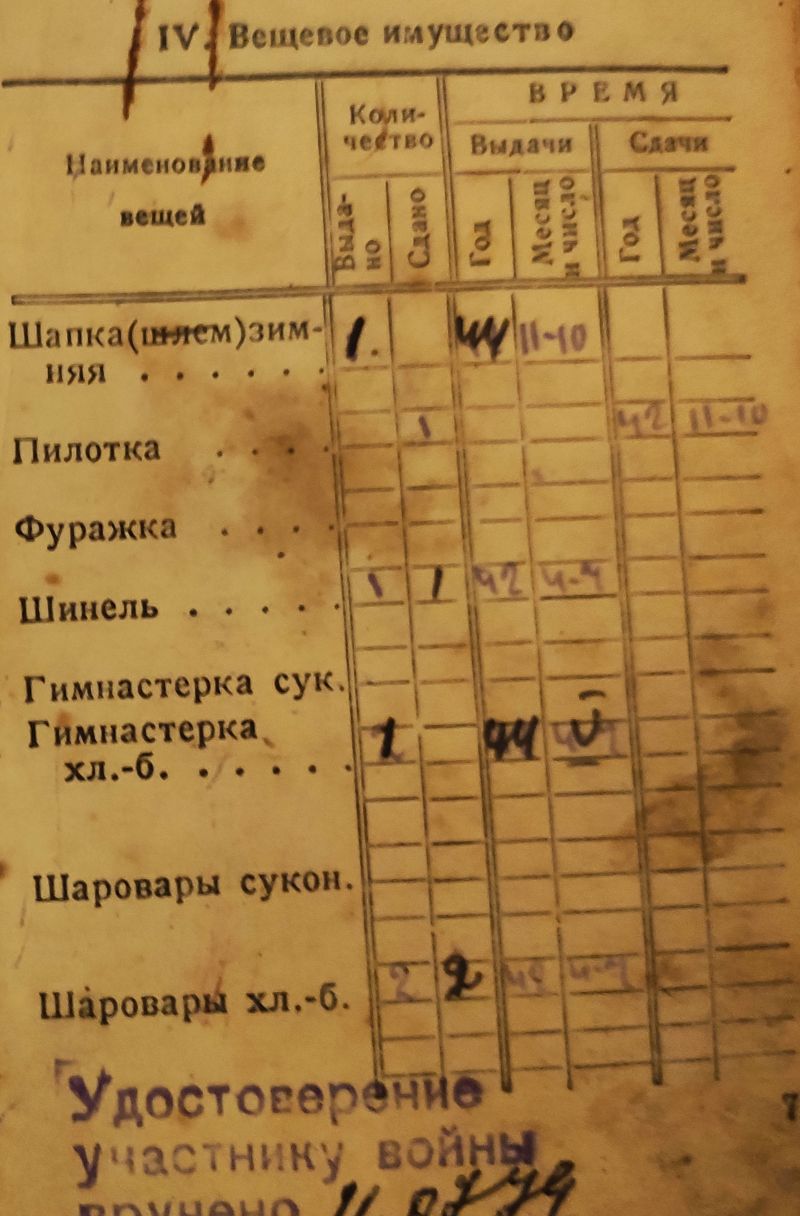 IV. Вещевое имущество
Наименование вещей
Коли-
чество
ВРЕМЯ
Выдачи
Сдачи
Выда-
но
Сдано
Год
Месяц
и число
Год
Месяц
и число
Шапка(шлем)зим- 1. 44 11-10
няя . . . . . .
Пилотка . . . . 1 42 11-10
Фуражка . . . .
Шинель . . . . . 1 1 42 4-4
Гимнастерка сук.
Гимнастерка 1 44 V
хл.-б. . . . . . .
Шаровары сукон.
Шаровары хл.-б. 2 2 42 4-4
7
Удостоверение
участнику войны
вручено